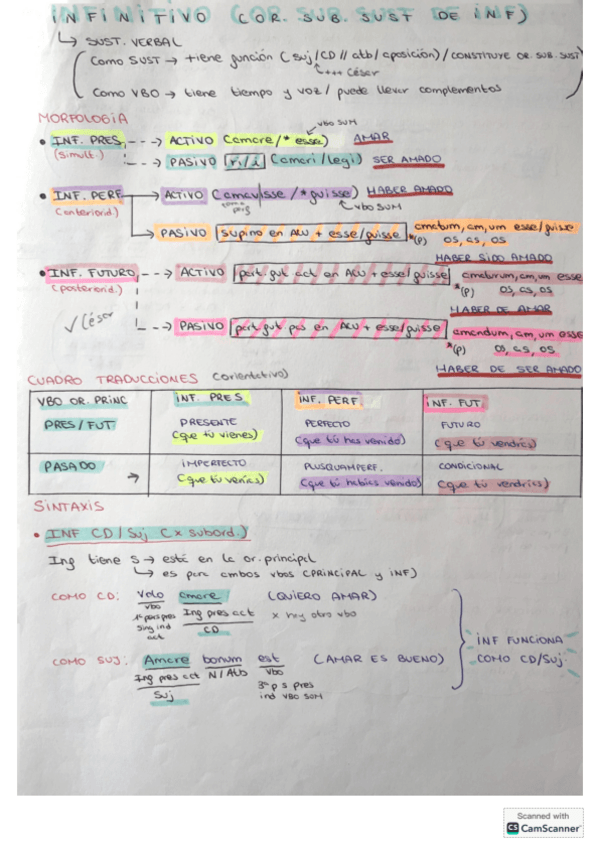 INFINITIVO (OR. SUB. SUST DE INF)
↳ SUST. VERBAL
Como SUST → tiene función (suj/CD // atb/aposición) / CONSTITUYE OR. SUB. SUST
+++ César
Como VBO → tiene tiempo y voz / puede llevar complementos
MORFOLOGÍA
• INF. PRES. ---→ ACTIVO (amare/*esse) AMAR
vbo SUM
(simult.) ---→ PASIVO ri/i (amari/legi) SER AMADO
• INF. PERF → ACTIVO (amavisse/*fuisse) HABER AMADO
vbo SUM
(anteriorid.)
→ PASIVO supino en ACU + esse/fuisse amatum, am, um esse/fuisse
*(p) os, as, os
HABER SIDO AMADO
• INF. FUTURO ---→ ACTIVO part. fut act en ACU + esse/fuisse amaturum, am, um esse
(posteriorid.) *(p) os, as, os
HABER DE AMAR
✓ César
---→ PASIVO part. fut pas en ACU + esse/fuisse amandum, am, um esse
*(p) os, as, os
HABER DE SER AMADO
CUADRO TRADUCCIONES (orientativo)
VBO OR. PRINC INF. PRES INF. PERF. INF. FUT.
PRES/FUT PRESENTE PERFECTO FUTURO
(que tú vienes) (que tú has venido) (que tú vendrás)
PASADO → IMPERFECTO PLUSQUAMPERF. CONDICIONAL
(que tú venías) (que tú habías venido) (que tú vendrías)
SINTAXIS
• INF CD/Suj (x subord.)
Inf tiene S → está en la or. principal
↳ es para ambos vbos (PRINCIPAL y INF)
COMO CD: Volo amare (QUIERO AMAR)
vbo Inf pres act x hay otro vbo
1ª pers pres
sing ind CD
act
COMO SUJ: Amare bonum est (AMAR ES BUENO)
Inf pres act N/Atb vbo
Suj 3ª p s pres
ind VBO SUM
INF FUNCIONA
COMO CD/Suj
Scanned with
CS CamScanner